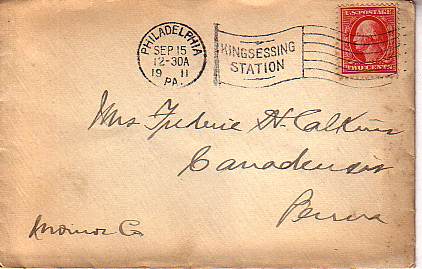 PHILADELPHIA
SEP 15
12-30A
19 11
PA.
KINGSESSING
STATION
U.S. POSTAGE
TWO CENTS
Mrs Frederic H. Calkins
Canadensis
Penna
Monroe Co